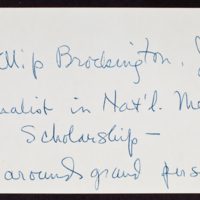 llip Brockington, J
nalist in Nat'l. Me
Scholarship —
around grand pers